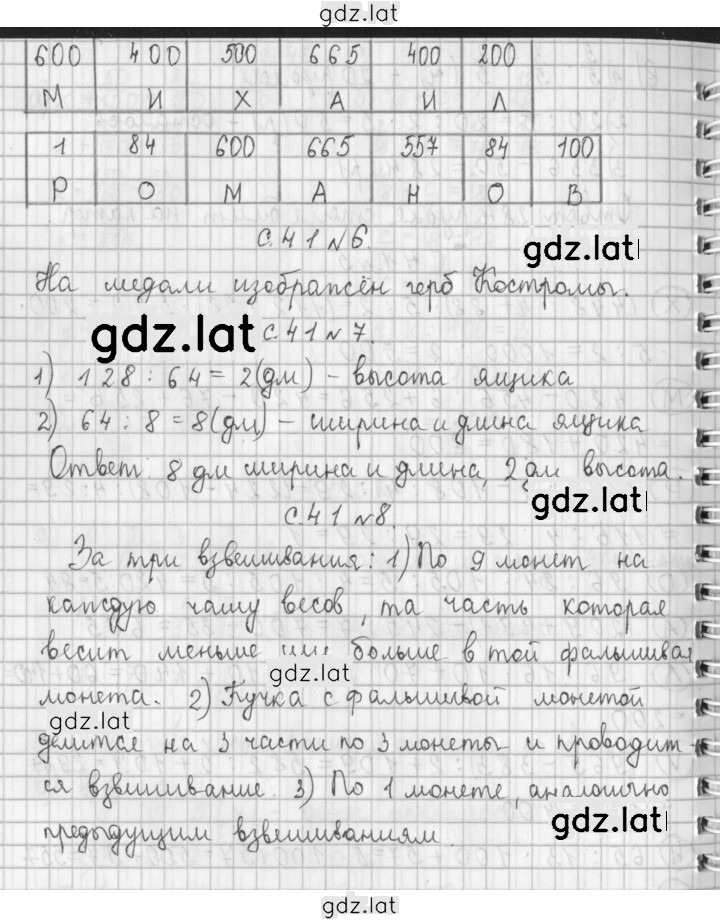 gdz.lat
600 400 500 665 400 200
М И Х А И Л
1 84 600 665 557 84 100
Р О М А Н О В
С. 41 № 6.
gdz.lat
На медали изображён герб Костромы.
gdz.lat
С. 41 № 7.
1) 128 : 64 = 2 (дм) - высота ящика
2) 64 : 8 = 8 (дм) - ширина и длина ящика
Ответ: 8 дм ширина и длина, 2 дм высота.
gdz.lat
С. 41 № 8.
За три взвешивания: 1) По 9 монет на
каждую чашу весов, та часть которая
весит меньше или больше в той фальшивая
gdz.lat
монета. 2) Кучка с фальшивой монетой
gdz.lat
делится на 3 части по 3 монеты и проводит-
ся взвешивание. 3) По 1 монете, аналогично
предыдущим взвешиваниям.
gdz.lat
gdz.lat